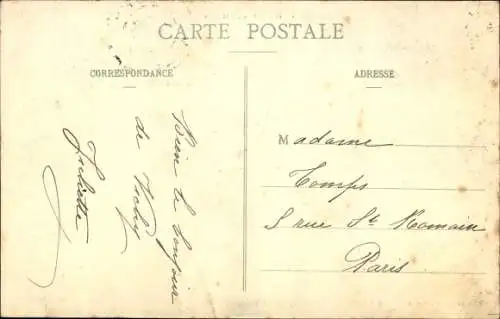 CARTE POSTALE
CORRESPONDANCE
Bien le bonjour
de Vichy
Juliette
ADRESSE
Madame
Comps
8 rue St Romain
Paris